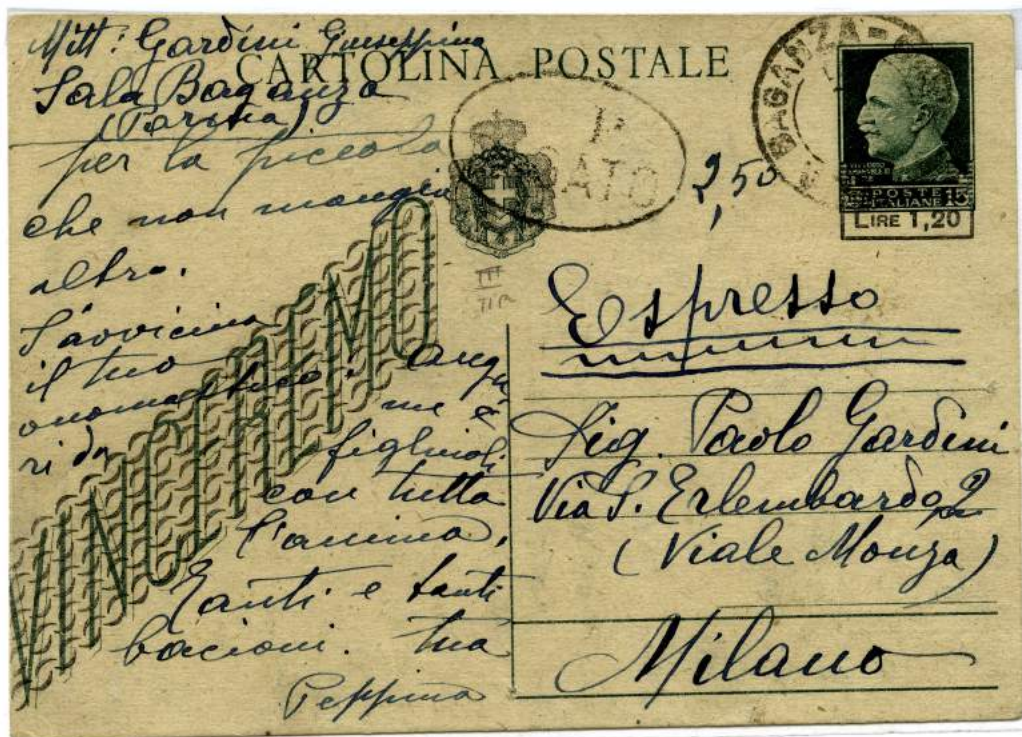 Mitt: Gardini Giuseppina
Sala Baganza
(Parma)
CARTOLINA POSTALE
per la piccola
che non mangia
altro.
S'avvicina
il tuo
onomastico. augu
ri da me e
figliuoli
con tutta
l'anima.
Tanti e tanti
bacioni. tua
Peppina
VINCEREMO
P
ATO
BAGANZA
2,50
POSTE
ITALIANE 15
LIRE 1,20
III
Espresso
Sig. Paolo Gardini
Via S. Erlembardo 2
(Viale Monza)
Milano